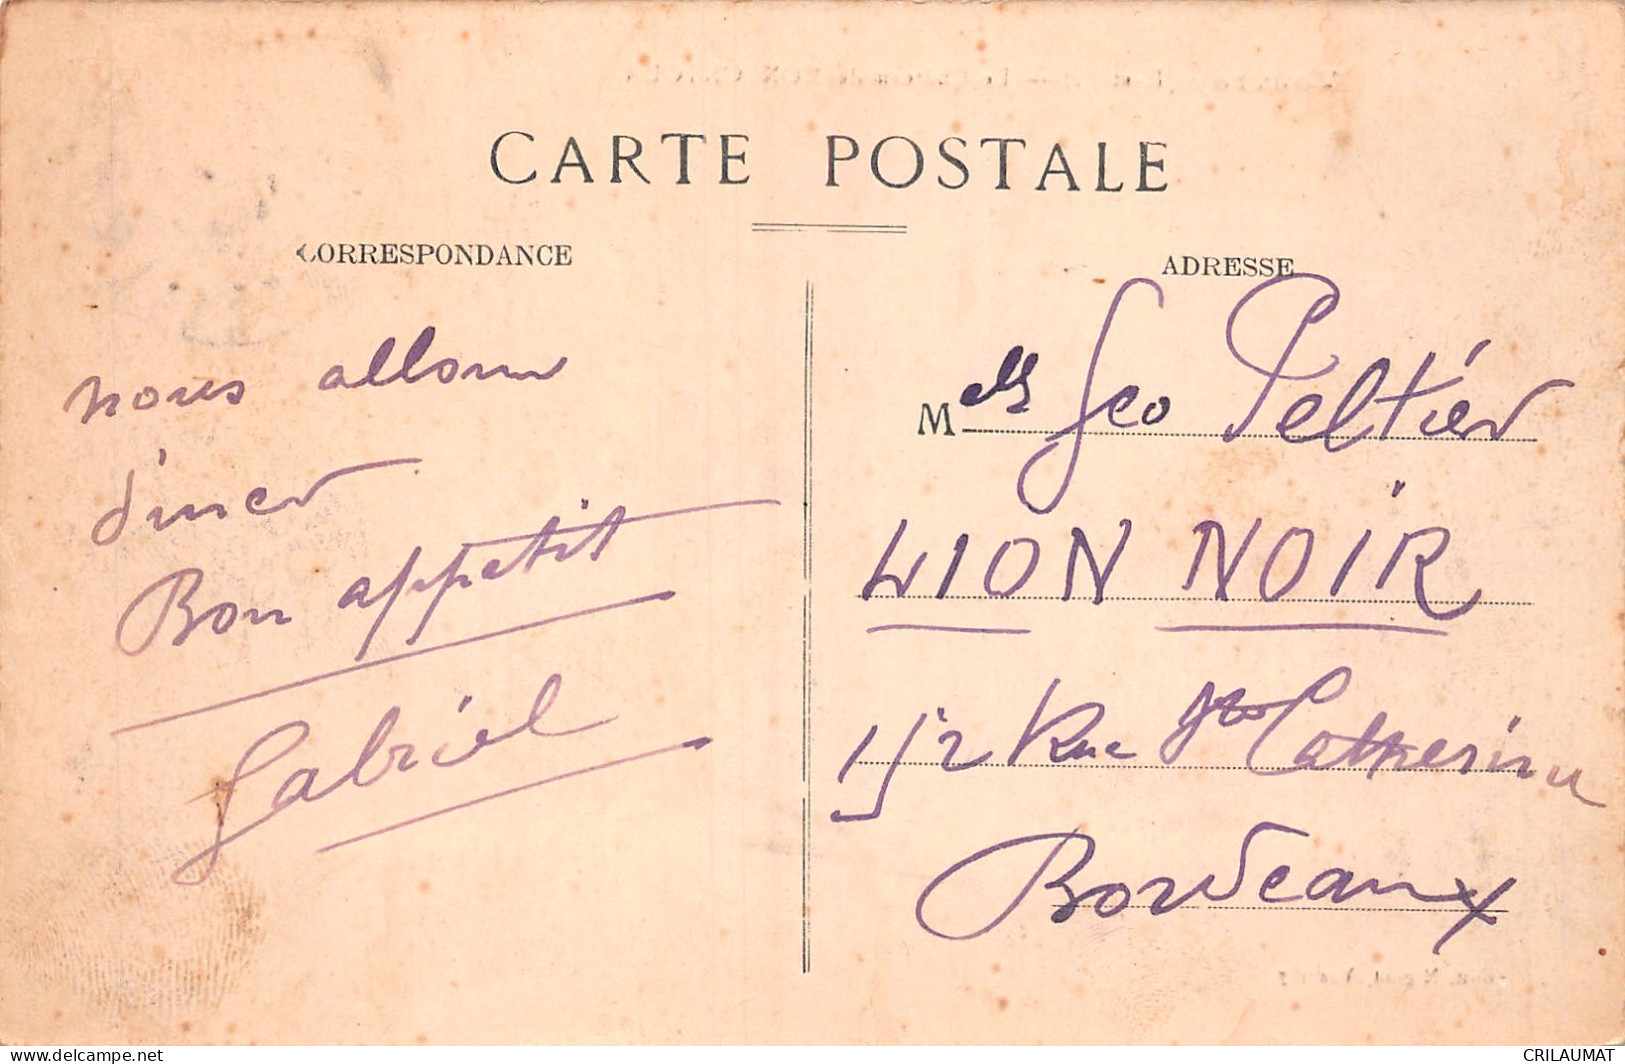 CARTE POSTALE
CORRESPONDANCE
nous allons
diner
Bon appetit
Gabriel
ADRESSE
Melle Geo Peltier
LION NOIR
152 Rue Ste Catherine
Bordeaux
CRILAUMAT